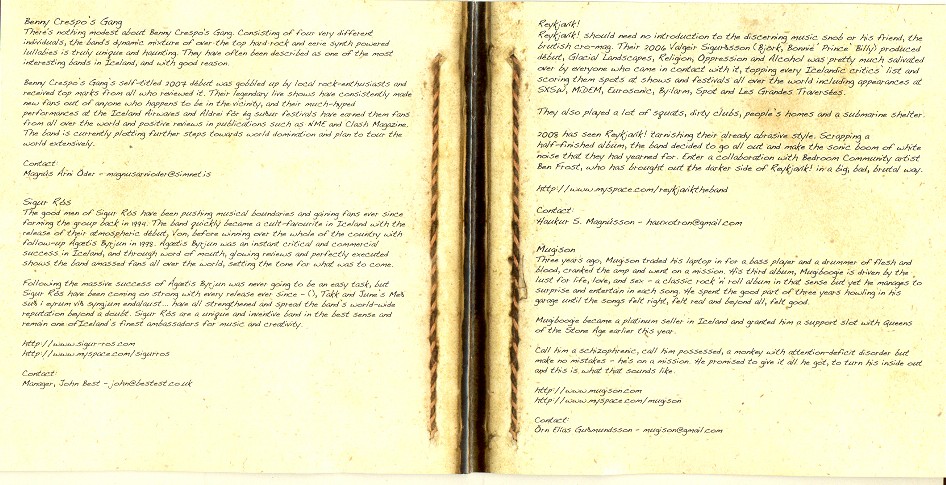 Benny Crespo's Gang
There's nothing modest about Benny Crespo's Gang. Consisting of four very different
individuals, the band's dynamic mixture of over the top hard-rock and eerie synth powered
lullabies is truly unique and haunting. They have often been described as one of the most
interesting bands in Iceland, and with good reason.
Benny Crespo's Gang's self-titled 2007 début was gobbled up by local rock-enthusiasts and
received top marks from all who reviewed it. Their legendary live shows have consistently made
new fans out of anyone who happens to be in the vicinity, and their much-hyped
performances at the Iceland Airwaves and Aldrei fór ég suður festivals have earned them fans
from all over the world and positive reviews in publications such as NME and Clash Magazine.
The band is currently plotting further steps towards world domination and plan to tour the
world extensively.
Contact:
Magnús Árni Öder - magnusarnioder@simnet.is
Sigur Rós
The good men of Sigur Rós have been pushing musical boundaries and gaining fans ever since
forming the group back in 1994. The band quickly became a cult-favourite in Iceland with the
release of their atmospheric début, Von, before winning over the whole of the country with
follow-up Ágætis Byrjun in 1998. Ágætis Byrjun was an instant critical and commercial
success in Iceland, and through word of mouth, glowing reviews and perfectly executed
shows the band amassed fans all over the world, setting the tone for what was to come.
Following the massive success of Ágætis Byrjun was never going to be an easy task, but
Sigur Rós have been coming on strong with every release ever since - (), Takk and June's Með
suð í eyrum við spilum endalaust... have all strengthened and spread the band's world-wide
reputation beyond a doubt. Sigur Rós are a unique and inventive band in the best sense and
remain one of Iceland's finest ambassadors for music and creativity.
http://www.sigur-ros.com
http://www.myspace.com/sigurros
Contact:
Manager, John Best - john@bestest.co.uk
Reykjavík!
Reykjavík! should need no introduction to the discerning music snob or his friend, the
brutish cro-mag. Their 2006 Valgeir Sigurðsson (Björk, Bonnie 'Prince' Billy) produced
début, Glacial Landscapes, Religion, Oppression and Alcohol was pretty much salivated
over by everyone who came in contact with it, topping every Icelandic critics' list and
scoring them spots at shows and festivals all over the world including appearances at
SXSW, MIDEM, Eurosonic, By:larm, Spot and Les Grandes Traversées.
They also played a lot of squats, dirty clubs, people's homes and a submarine shelter.
2008 has seen Reykjavík! tarnishing their already abrasive style. Scrapping a
half-finished album, the band decided to go all out and make the sonic boom of white
noise that they had yearned for. Enter a collaboration with Bedroom Community artist
Ben Frost, who has brought out the darker side of Reykjavík! in a big, bad, brutal way.
http://www.myspace.com/reykjaviktheband
Contact:
Haukur S. Magnússon - hauxotron@gmail.com
Mugison
Three years ago, Mugison traded his laptop in for a bass player and a drummer of flesh and
blood, cranked the amp and went on a mission. His third album, Mugiboogie is driven by the
lust for life, love, and sex - a classic rock'n'roll album in that sense but yet he manages to
surprise and entertain in each song. He spent the good part of three years howling in his
garage until the songs felt right, felt real and beyond all, felt good.
Mugiboogie became a platinum seller in Iceland and granted him a support slot with Queens
of the Stone Age earlier this year.
Call him a schizophrenic, call him possessed, a monkey with attention-deficit disorder but
make no mistakes - he's on a mission. He promised to give it all he got, to turn his inside out
and this is what that sounds like.
http://www.mugison.com
http://www.myspace.com/mugison
Contact:
Örn Elías Guðmundsson - mugison@gmail.com